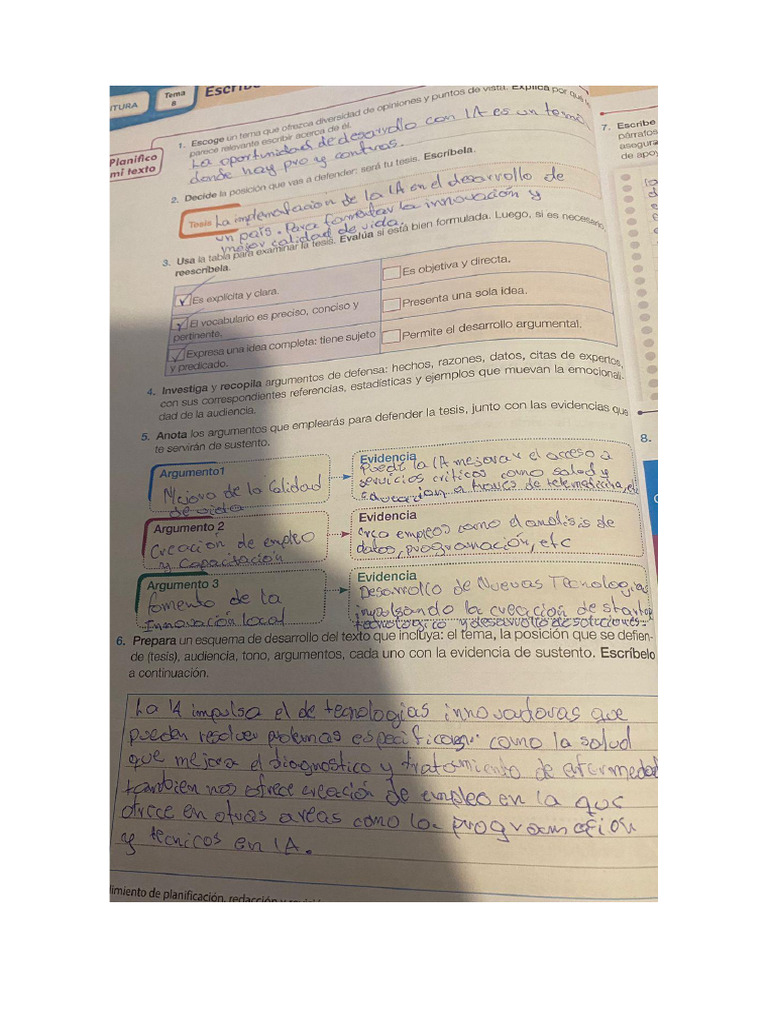 TURA
Tema
8
Escrib
Planifico
mi texto
1. Escoge un tema que ofrezca diversidad de opiniones y puntos de vista. Explica por qué te
parece relevante escribir acerca de él.
La oportunidad de desarrollo con IA es un tema
donde hay pro y contras.
2. Decide la posición que vas a defender: será tu tesis. Escríbela.
Tesis La implementacion de la IA en el desarrollo de
un país. Para fomentar la innovación y
mejor calidad de vida.
3. Usa la tabla para examinar la tesis. Evalúa si está bien formulada. Luego, si es necesario,
reescríbela.
Es explícita y clara.
Es objetiva y directa.
El vocabulario es preciso, conciso y
pertinente.
Presenta una sola idea.
Expresa una idea completa: tiene sujeto
y predicado.
Permite el desarrollo argumental.
4. Investiga y recopila argumentos de defensa: hechos, razones, datos, citas de expertos,
con sus correspondientes referencias, estadísticas y ejemplos que muevan la emocionali-
dad de la audiencia.
5. Anota los argumentos que emplearás para defender la tesis, junto con las evidencias que
te servirán de sustento.
Argumento1
Mejora de la Calidad
de vida
Evidencia
Puede la IA mejorar el acceso a
servicios criticos como salud y
educacion a traves de
Argumento 2
Creación de empleo
y Capacitación
Evidencia
Crea empleos como el analisis de
datos, programación, etc
Argumento 3
fomento de la
Innovación local
Evidencia
Desarrollo de Nuevas Tecnologia
impulsando la creacion de startop
tecnologico y desarrollo de soluciones.
6. Prepara un esquema de desarrollo del texto que incluya: el tema, la posición que se defien-
de (tesis), audiencia, tono, argumentos, cada uno con la evidencia de sustento. Escríbelo
a continuación.
La IA impulsa el de tecnologias innovadoras que
pueden resolver problemas como la salud
que mejora el diagnostico y tratamiento de enfermedad
tambien nos ofrece creación de empleo en la que
ofrece en otras areas como la programación
y tecnicos en IA.
limiento de planificación, redacción y
7. Escribe
párrafos
asegura
de apoy
8.